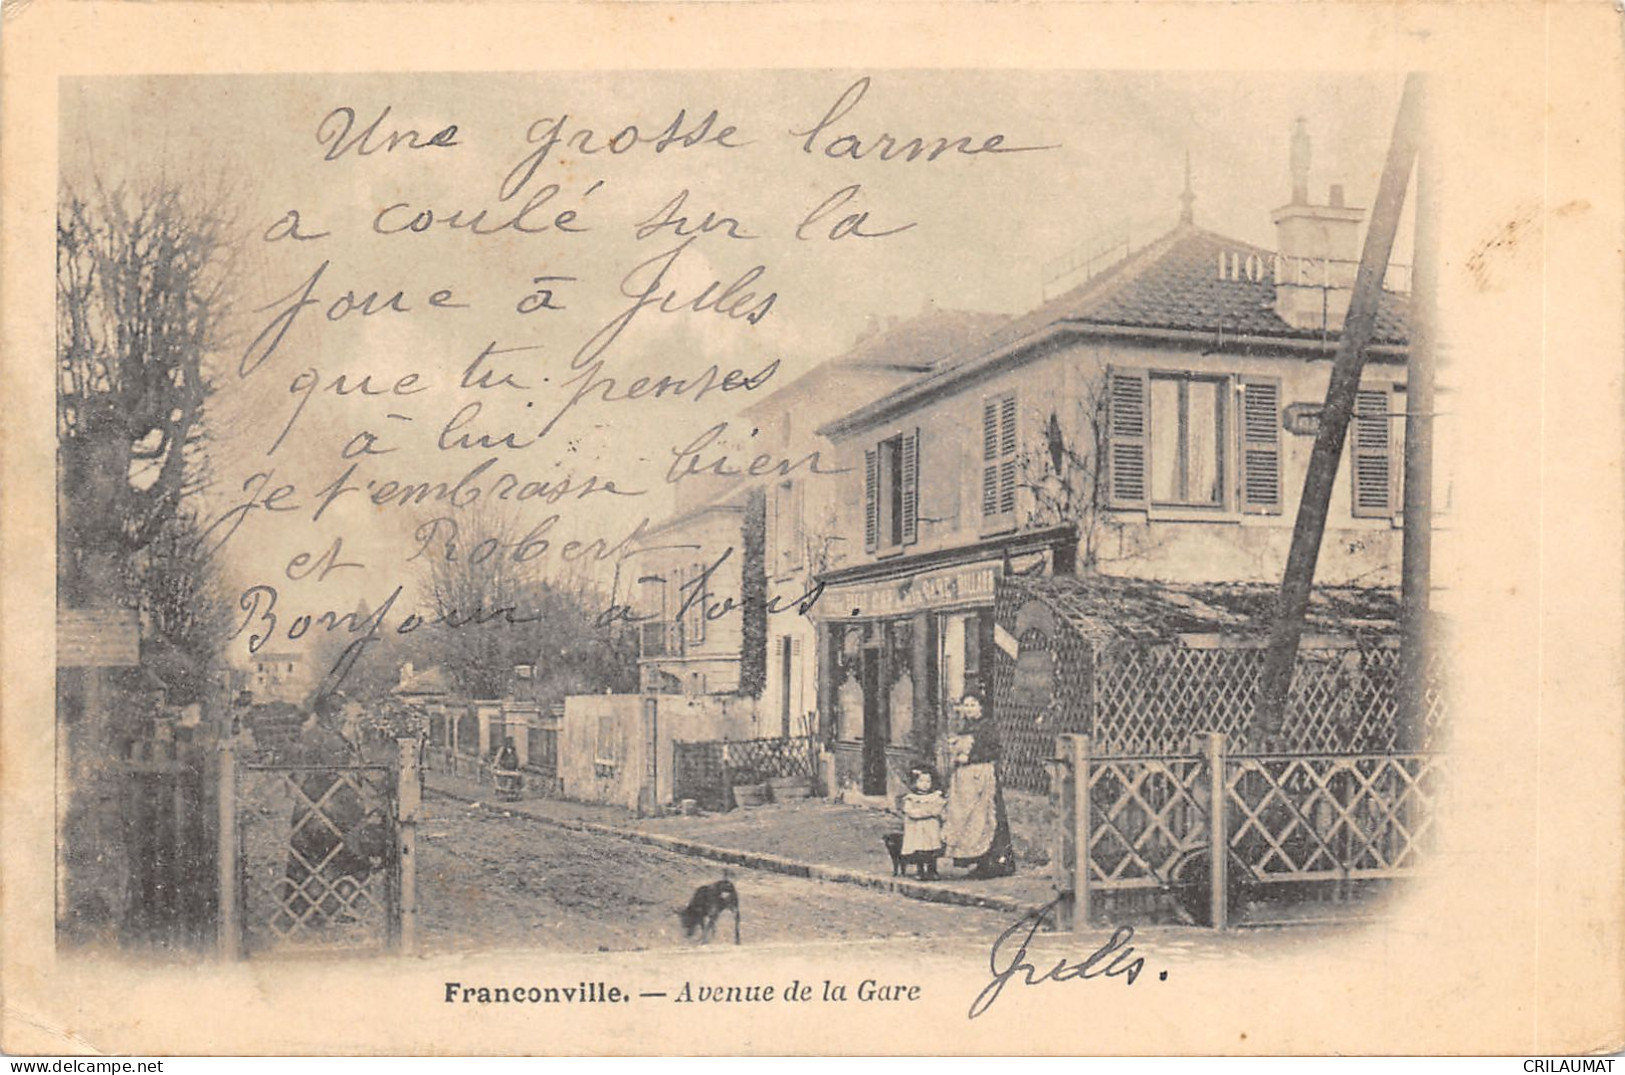 Une grosse larme
a coulé sur la
joue à Jules
que tu penses
à lui
Je t'embrasse bien
et Robert
Bonjour à tous.
HOTEL
Jules.
Franconville. — Avenue de la Gare
CRILAUMAT